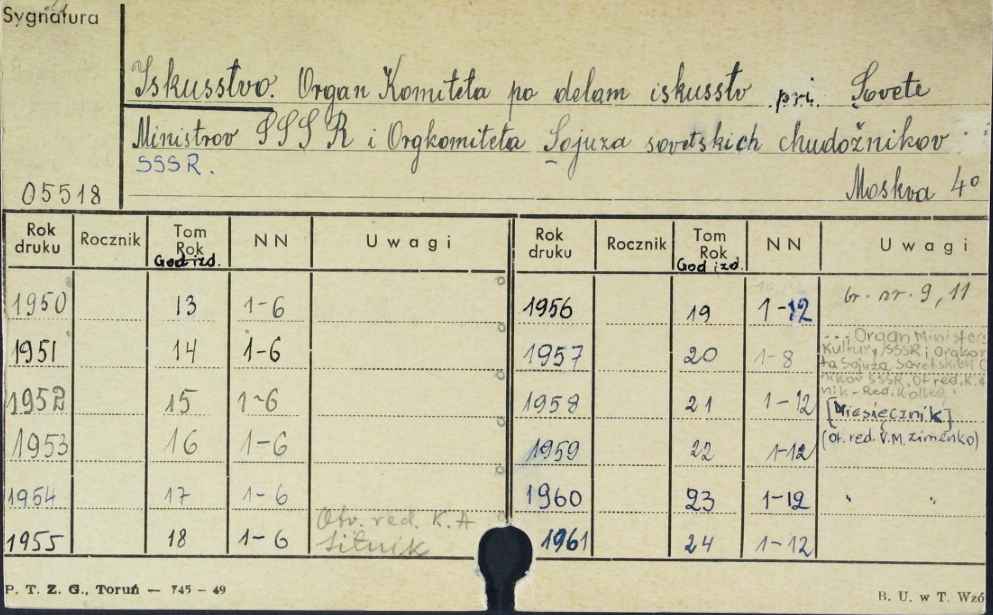 Sygnatura
Iskusstvo. Organ Komiteta po delam iskusstv pri. Sovete
Ministrov SSSR i Orgkomiteta Sojuza sovetskich chudožnikov
SSSR.
05518 Moskva 4°
Rok druku Rocznik Tom Rok God izd. NN Uwagi Rok druku Rocznik Tom Rok God izd. NN Uwagi
1950 13 1-6 1956 19 1-12 br. nr. 9, 11
1951 14 1-6 1957 20 1-8 ... Organ Minister
Kultury SSSR i Orgkom
ta Sojuza Sovetskich
nikov SSSR. Ot red. K.
nik - Red. Kolleg.
1952 15 1-6 1958 21 1-12 [Miesięcznik]
1953 16 1-6 1959 22 1-12 (Ot. red. V.M. Zimenko)
1954 17 1-6 1960 23 1-12 " "
1955 18 1-6 Otv. red. K. A Sitnik 1961 24 1-12
P. T. Z. G., Toruń — 745 - 49 B. U. w T. Wzó